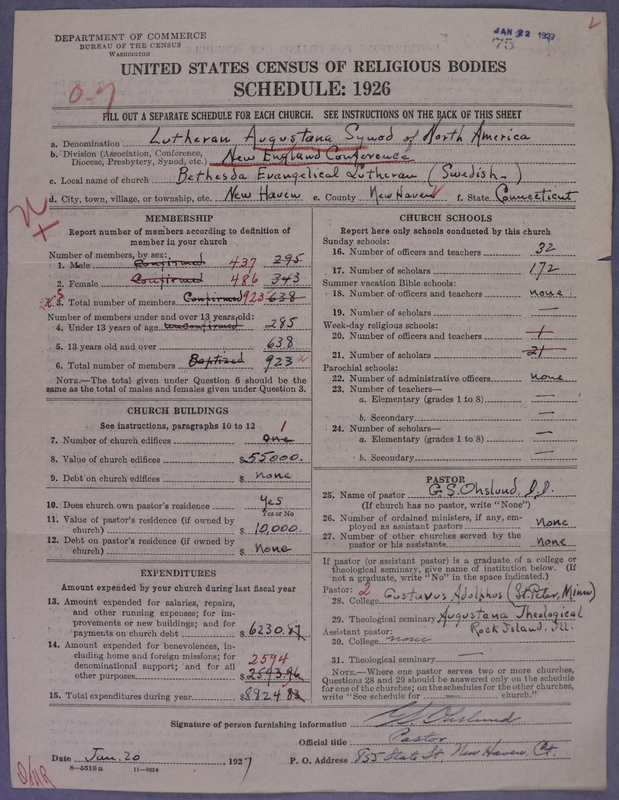 DEPARTMENT OF COMMERCE
BUREAU OF THE CENSUS
WASHINGTON
JAN 22 1927
75
UNITED STATES CENSUS OF RELIGIOUS BODIES
SCHEDULE: 1926
FILL OUT A SEPARATE SCHEDULE FOR EACH CHURCH. SEE INSTRUCTIONS ON THE BACK OF THIS SHEET
a. Denomination Lutheran Augustana Synod of North America
b. Division (Association, Conference, Diocese, Presbytery, Synod, etc.) New England Conference
c. Local name of church Bethesda Evangelical Lutheran (Swedish)
d. City, town, village, or township, etc. New Haven e. County New Haven f. State Connecticut
MEMBERSHIP
Report number of members according to definition of
member in your church
Number of members, by sex:
1. Male Confirmed 437 295
2. Female Confirmed 486 343
3. Total number of members Confirmed 923 638
Number of members under and over 13 years old:
4. Under 13 years of age Unconfirmed 285
5. 13 years old and over 638
6. Total number of members Baptized 923
NOTE.—The total given under Question 6 should be the
same as the total of males and females given under Question 3.
CHURCH BUILDINGS
See instructions, paragraphs 10 to 12
7. Number of church edifices One 1
8. Value of church edifices $55000.
9. Debt on church edifices $ none
10. Does church own pastor's residence Yes
Yes or No
11. Value of pastor's residence (if owned by
church) $ 10,000.
12. Debt on pastor's residence (if owned by
church) $ None
EXPENDITURES
Amount expended by your church during last fiscal year
13. Amount expended for salaries, repairs,
and other running expenses; for im-
provements or new buildings; and for
payments on church debt $6230.87
14. Amount expended for benevolences, in-
cluding home and foreign missions; for
denominational support; and for all
other purposes 2594 $2593.96
15. Total expenditures during year $8824 83
CHURCH SCHOOLS
Report here only schools conducted by this church
Sunday schools:
16. Number of officers and teachers 32
17. Number of scholars 172
Summer vacation Bible schools:
18. Number of officers and teachers none
19. Number of scholars —
Week-day religious schools:
20. Number of officers and teachers 1
21. Number of scholars 21
Parochial schools:
22. Number of administrative officers none
23. Number of teachers—
a. Elementary (grades 1 to 8) —
b. Secondary —
24. Number of scholars—
a. Elementary (grades 1 to 8) —
b. Secondary —
PASTOR
25. Name of pastor G. S. Ohslund, D.D.
(If church has no pastor, write "None")
26. Number of ordained ministers, if any, em-
ployed as assistant pastors None
27. Number of other churches served by the
pastor or his assistants None
If pastor (or assistant pastor) is a graduate of a college or
theological seminary, give name of institution below. (If
not a graduate, write "No" in the space indicated.)
Pastor: 2
28. College Gustavus Adolphus (St. Peter, Minn)
29. Theological seminary Augustana Theological
Rock Island, Ill.
Assistant pastor:
30. College none
31. Theological seminary —
NOTE.—Where one pastor serves two or more churches,
Questions 28 and 29 should be answered only on the schedule
for one of the churches; on the schedules for the other churches,
write "See schedule for church."
Signature of person furnishing information G. S. Ohslund
Official title Pastor
Date Jan. 20, 1927 P. O. Address 855 State St. New Haven, Ct.
8—5518 a 11—9054